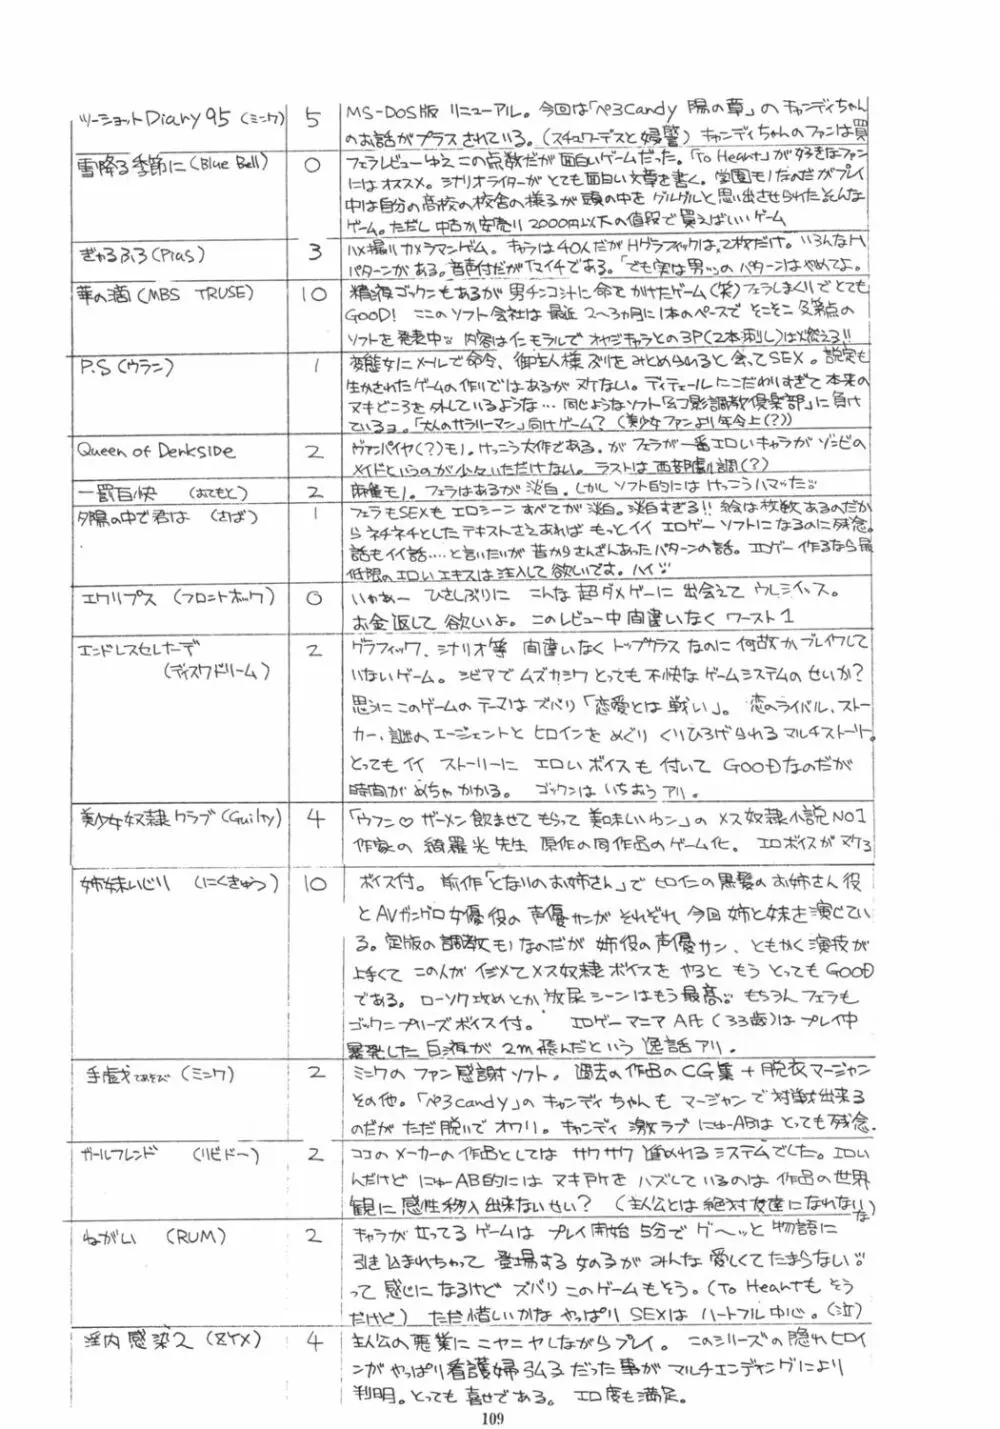 ツーショットDiary95（ミンク） 5 MS-DOS版 リニューアル。今回は「ぺろCandy 陽の章」のキャンディちゃん
のお話がプラスされている。（スチュワーデスと婦警） キャンディちゃんのファンは買
雪降る季節に（Blue Bell） 0 フェラレビューゆえこの点数だが面白いゲームだった。「To Heart」が好きなファン
にはオススメ。シナリオライターがとても面白い文章を書く。学園モノだがプレイ
中は自分の高校の校舎の様子が頭の中をグルグルと思い出させられたそんな
ゲーム。ただし中古か安売り2000円以下の値段で買えばいいゲーム
ぎゃるふろ（Pias） 3 ハメ撮りカメラマンゲーム。キャラは40人だがHグラフィックは、2枚だけ。いろんなH
パターンがある。音声付だがイマイチである。「でも実は男」のパターンはやめてよ。
華の滴（MBS TRUSE） 10 精液ゴックンもあるが男チンコ汁に命をかけたゲーム（笑）フェラしまくりでとても
GOOD! ここのソフト会社は最近2〜3ヵ月に1本のペースでそこそこ及第点の
ソフトを発表中。内容はインモラルでオヤジキャラとの3P（2本刺し）は燃える!!
P.S（ウラン） 1 変態女にメールで命令、御主人様ぶりをみとめられると会ってSEX。設定も
生かされたゲームの作りではあるがヌケない。ディティールにこだわりすぎて本来の
ヌキどころを外しているような… 同じようなソフト「幻影調教倶楽部」に負け
ているヨ。「大人のサラリーマン」向けゲーム?（美少女ファンより年令上（?））
Queen of Denkside 2 ヴァンパイヤ（?）モノ。けっこう大作である。が フェラが一番エロいキャラがゾンビの
メイドというのが少々いただけない。ラストは西部劇調（?）
一罰百快 （おてもと） 2 麻雀モノ。フェラはあるが淡白。しかしソフト的にはけっこうハマッた。
夕陽の中で君は （さば） 1 フェラもSEXも エロシーン すべてが淡白。淡白すぎる!! 絵は枚数あるのだか
らネチネチとしたテキストさえあれば もっとイイ エロゲーソフトになるのに残念。
話もイイ話…と言いたいが 昔からさんざんあったパターンの話。エロゲー作るなら最
低限のエロいエキスは注入して欲しいです。ハイ
エクリプス （フロントホック） 0 いやあー ひさしぶりに こんな 超ダメゲーに 出会えて ウレシイッス。
お金返して欲しいよ。このレビュー中 間違いなく ワースト1
エンドレスセレナーデ 2 グラフィック、シナリオ等 間違いなく トップクラス なのに 何故か ブレイクして
（ディスクドリーム） いないゲーム。シビアで ムズカシク とっても 不快な ゲームシステムの せいか?
思うに このゲームの テーマは ズバリ 「恋愛とは 戦い」。 恋のライバル、ストー
カー、謎のエージェントと ヒロインを めぐり くりひろげられる マルチストーリー。
とっても イイ ストーリーに エロいボイスも 付いて GOODなのだが
時間が めちゃ かかる。 ゴックンは いちおう アリ。
美少女奴隷クラブ（Guilty） 4 「ウフン♡ ザーメン飲ませて もらって 美味しいわン」の メス奴隷小説NO1
作家の 綺羅光先生 原作の同作品のゲーム化。 エロボイスがヌケる
姉妹いじり （にくきゅう） 10 ボイス付。 前作「となりのお姉さん」で ヒロインの黒髪のお姉さん役
とAVガングロ女優役の 声優サンが それぞれ 今回 姉と妹を 演じてい
る。定版の 調教モノなのだが 姉役の声優サン、ともかく 演技が
上手くて この人が イジメて メス奴隷 ボイスを やると もう とっても GOOD
である。 ローソク攻めとか 放尿シーンはもう 最高。 もちろん フェラも
ゴックンプリーズボイス付。 エロゲーマニア A氏（33歳）は プレイ中
暴発した 白液が 2m飛んだという 逸話アリ。
手戯 てあそび （ミンク） 2 ミンクの ファン感謝ソフト。 過去の作品のCG集 + 脱衣マージャン
その他。「ぺろcandy」の キャンディちゃんも マージャンで 対戦出来る
のだが ただ脱いで オワリ。 キャンディ 激ラブ にゅーABは とっても 残念。
ガールフレンド （リビドー） 2 ココの メーカーの作品としては サクサク 進められる システムでした。エロい
んだけど にゅーAB的には ヌキドコを ハズしているのは 作品の世界
観に 感性移入 出来ないせい? （主人公とは 絶対 友達に なれないな）
ねがい （RUM） 2 キャラが 立ってる ゲームは プレイ開始 5分で グ〜ッと 物語に
引き込まれちゃって 登場する 女の子が みんな 愛しくて たまらない
って 感じに なるけど ズバリ このゲームも そう。（To Heartも そう
だけど） ただ 惜しいかな やっぱり SEXは ハートフル 中心。（泣）
淫内感染2 （ZYX） 4 主人公の 悪業に ニヤニヤしながら プレイ。 このシリーズの 隠れ ヒロイ
ンが やっぱり 看護婦 だった 事が マルチエンディングにより
判明。とっても 幸せである。 エロ度も 満足。
109